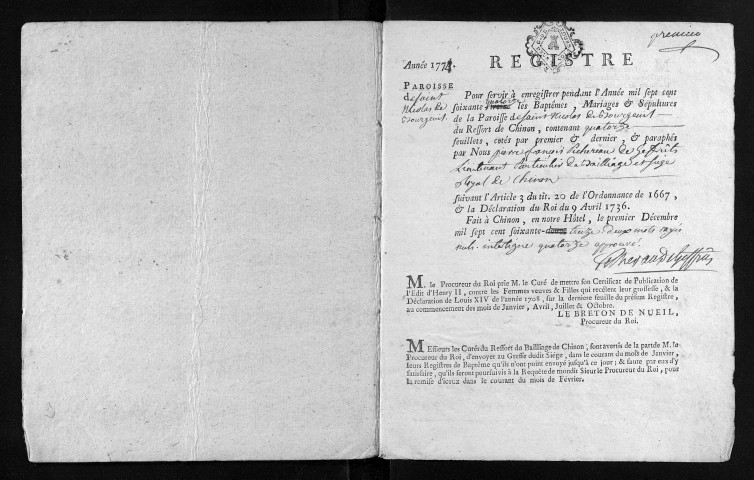 premier
REGISTRE
Année 1774.
PAROISSE
de Saint
Nicolas de
Bourgeuil.
Pour servir à enregistrer pendant l'Année mil sept cent
quatorze
soixante les Baptêmes, Mariages & Sépultures
de la Paroisse de Saint Nicolas de Bourgeuil
du Ressort de Chinon, contenant quatorze
feuillets, cotés par premier & dernier, & paraphés
par Nous pierre françois
Lieutenant Particulier du Bailliage et siége
Royal de Chinon
suivant l'Article 3 du tit. 20 de l'Ordonnance de 1667,
& la Déclaration du Roi du 9 Avril 1736.
Fait à Chinon, en notre Hôtel, le premier Décembre
mil sept cent soixante-douze treize deux mots rayés
nuls. interligne quatorze approuvé.
M. le Procureur du Roi prie M. le Curé de mettre son Certificat de Publication de
l'Edit d'Henry II, contre les Femmes veuves & Filles qui recélent leur grossesse, & la
Déclaration de Louis XIV de l'année 1708, sur la derniere feuille du présent Registre,
au commencement des mois de Janvier, Avril, Juillet & Octobre.
LE BRETON DE NUEIL,
Procureur du Roi.
MEssieurs les Curés du Ressort du Bailliage de Chinon, sont avertis de la part de M. le
Procureur du Roi, d'envoyer au Greffe dudit Siége, dans le courant du mois de Janvier,
leurs Registres de Baptême qu'ils n'ont point envoyé jusqu'à ce jour; & faute par eux d'y
satisfaire, qu'ils seront poursuivis à la Requête de mondit Sieur le Procureur du Roi, pour
la remise d'iceux dans le courant du mois de Février.